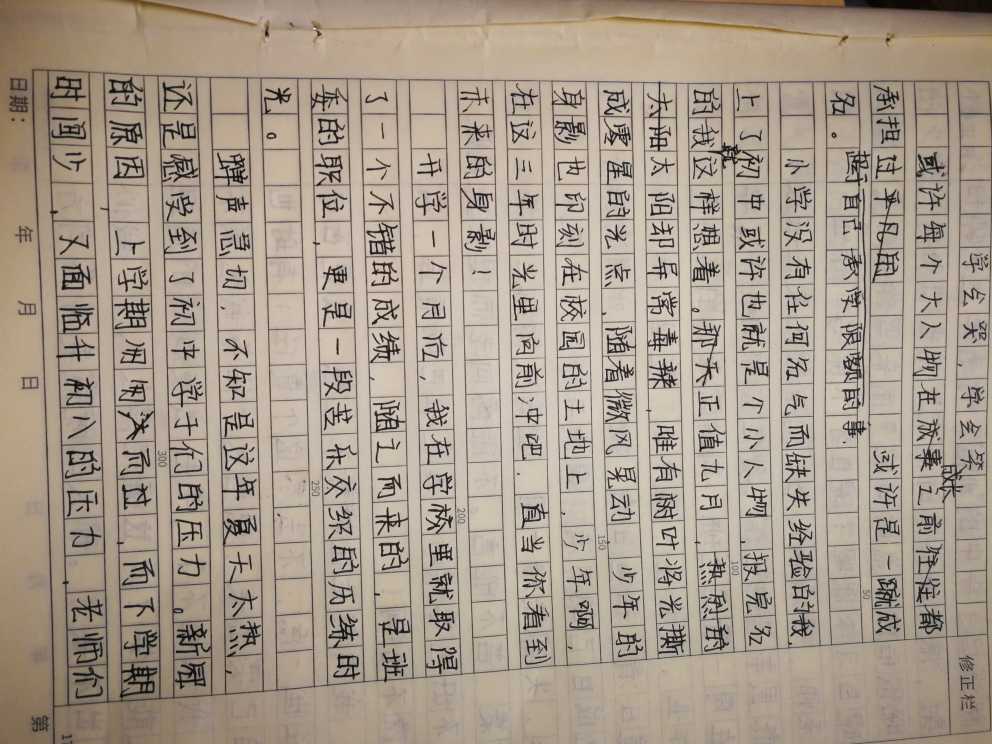 学会哭，学会笑
修正栏
或许每个大人物在放事成长之前往往都
承担过平凡困 或许是一蹴成
名。 离自己承受限额的事.
50
小学没有任何名气而缺失经验的我，
上了初中或许也就是个小人物，报完名
100
的我就这样想着。那天正值九月，热烈的
太阳太阳却异常毒辣，唯有树叶将光撕
成零星的光点，随着微风晃动，少年的
150
身影也印刻在校园的土地上，少年啊，
在这三年时光里向前冲吧，直当你看到
未来的身影！
200
开学一个月后，我在学校里就取得
了一个不错的成绩，随之而来的，是班
委的职位，更是一段苦乐交织的历练时
250
光。
蝉声急切，不知是这年夏天太热，
还是感受到了初中学子们的压力。新冠
300
的原因，上学期匆匆而过，而下学期
时间少，又面临升初八的压力，老师们
日期： 年 月 日 第